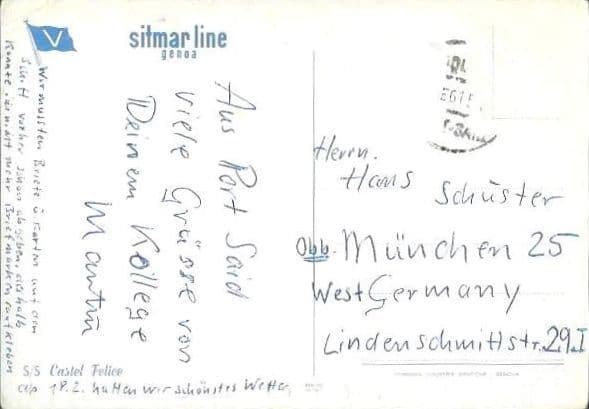 V
sitmar line
genoa
Aus Port Said
viele Grüsse von
Deinem Kollege
Martin
Wir mussten Briefe u. Karten auf dem
Schiff vorher schon abgeben, deshalb
konnte ich nicht mehr Briefmarken raufkleben
S/S Castel Felice
18.2. hatten wir schönstes Wetter
Herrn.
Hans Schuster
Obb. München 25
West Germany
Lindenschmittstr. 29.I